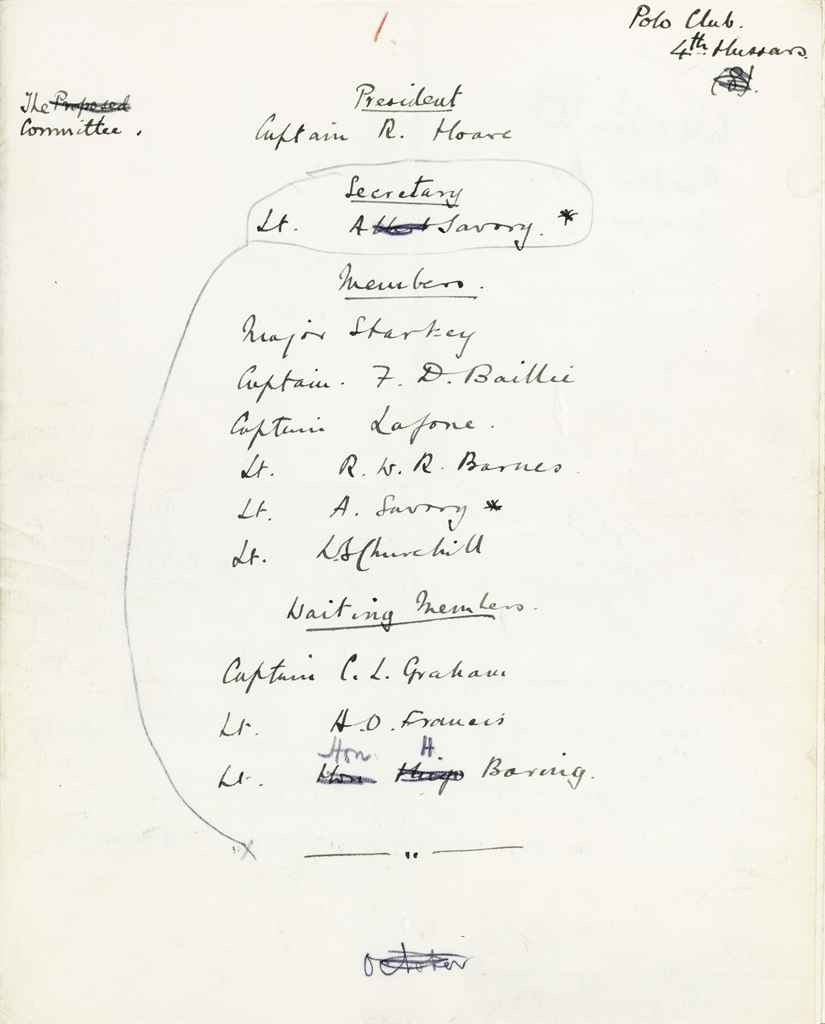 1
Polo Club.
4th Hussars.
The Proposed
Committee.
President
Captain R. Hoare
Secretary
Lt. Albert Savory. *
Members.
Major Starkey
Captain. F. D. Baillie
Captain Lafone.
Lt. R. W. R. Barnes.
Lt. A. Savory *
Lt. WSChurchill
Waiting Members.
Captain C. L. Graham
Lt. H. O. Francis
Hon. H.
Lt. Hon Hugo Baring.
x
October